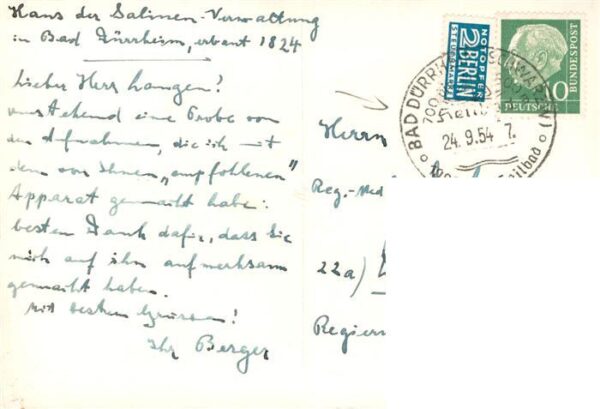 Haus der Salinen-Verwaltung
in Bad Dürrheim, erbaut 1824
Lieber Herr Langen!
umstehend eine Probe von
den Aufnahmen, die ich mit
dem von Ihnen „empfohlenen"
Apparat gemacht habe:
besten Dank dafür, dass Sie
mich auf ihn aufmerksam
gemacht haben.
Mit besten Grüssen!
Ihr Berger
NOTOPFER
2 BERLIN
STEUERMARKE
10
DEUTSCHE
BUNDESPOST
BAD DÜRRH
700
24.9.54 7.
Heilbad
Herrn
Reg.-Med
22a)
Regier